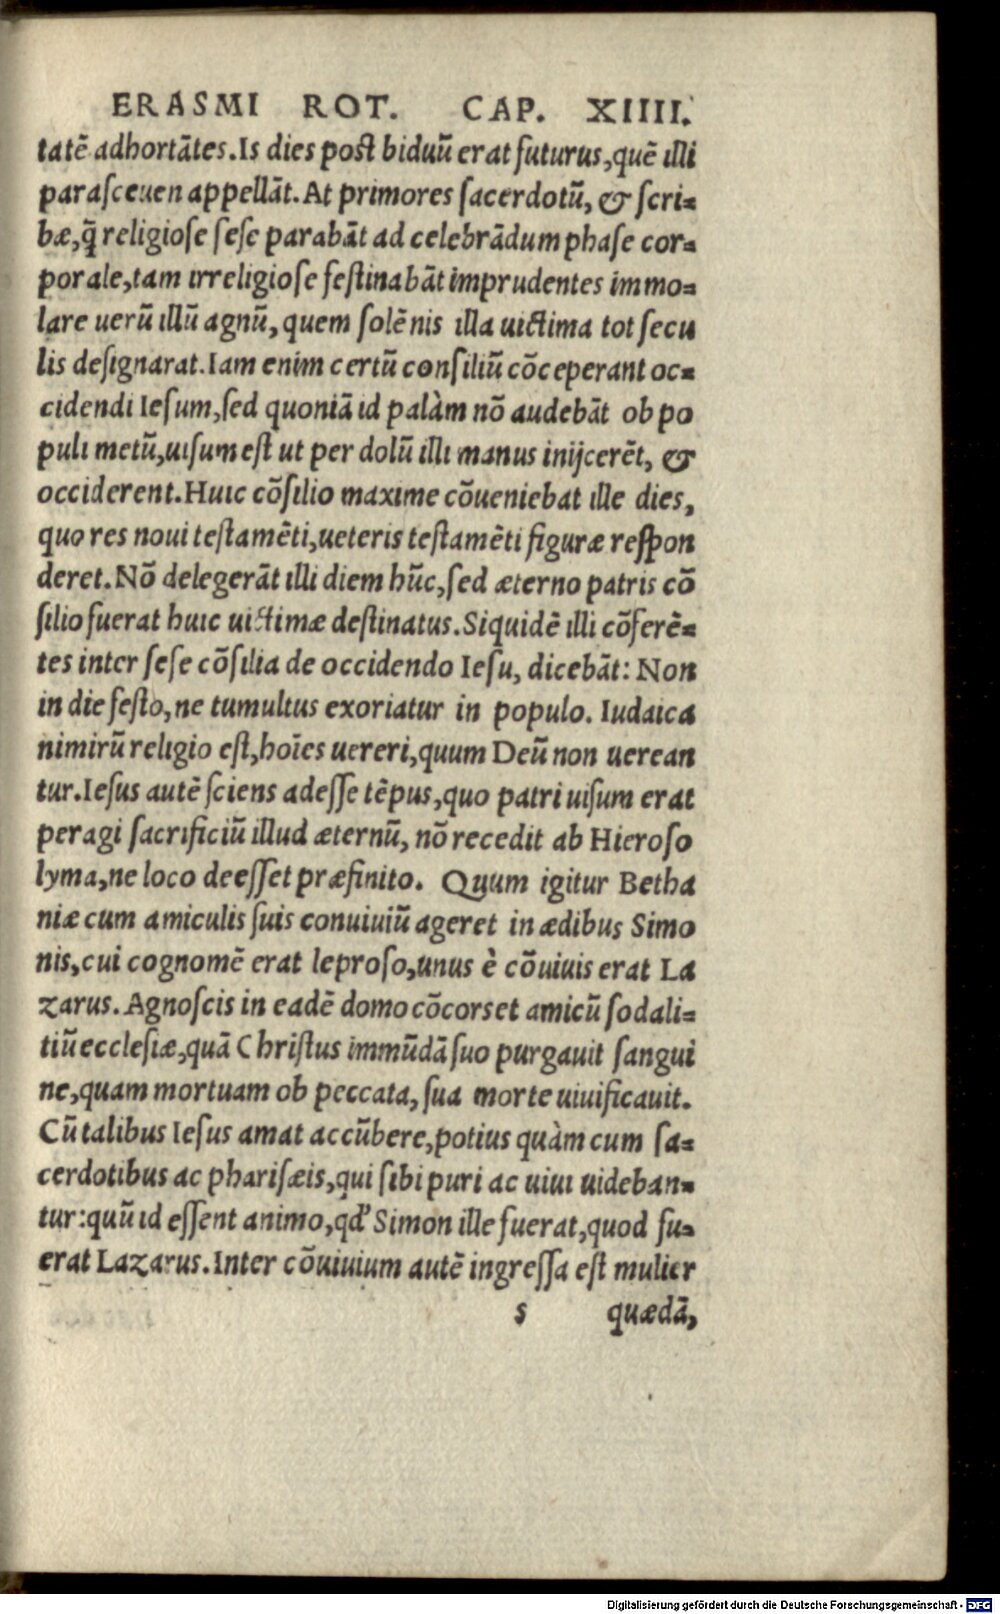 ERASMI ROT. CAP. XIIII.
tatē adhortātes. Is dies post biduū erat futurus, quē illi
parasceuen appellāt. At primores sacerdotū, & scri-
bæ, q̃ religiose sese parabāt ad celebrādum phase cor-
porale, tam irreligiose festinabāt imprudentes immo-
lare uerū illū agnū, quem solēnis illa uictima tot secu
lis designarat. Iam enim certū consiliū cōceperant oc-
cidendi Iesum, sed quoniā id palàm nō audebāt ob po
puli metū, uisum est ut per dolū illi manus inijcerēt, &
occiderent. Huic cōsilio maxime cōueniebat ille dies,
quo res noui testamēti, ueteris testamēti figuræ respon
deret. Nō delegerāt illi diem hūc, sed æterno patris cō
silio fuerat huic uictimæ destinatus. Siquidē illi cōferē-
tes inter sese cōsilia de occidendo Iesu, dicebāt: Non
in die festo, ne tumultus exoriatur in populo. Iudaica
nimirū religio est, hoīes uereri, quum Deū non uerean
tur. Iesus autē sciens adesse tēpus, quo patri uisum erat
peragi sacrificiū illud æternū, nō recedit ab Hieroso
lyma, ne loco deesset præfinito. Quum igitur Betha
niæ cum amiculis suis conuiuiū ageret in ædibus Simo
nis, cui cognomē erat leproso, unus è cōuiuis erat La
zarus. Agnoscis in eadē domo cōcors et amicū sodali-
tiū ecclesiæ, quā Christus immūdā suo purgauit sangui
ne, quam mortuam ob peccata, sua morte uiuificauit.
Cū talibus Iesus amat accūbere, potius quàm cum sa-
cerdotibus ac pharisæis, qui sibi puri ac uiui uideban-
tur: quū id essent animo, qd' Simon ille fuerat, quod fu-
erat Lazarus. Inter cōuiuium autē ingressa est mulier
s quædā,
Digitalisierung gefördert durch die Deutsche Forschungsgemeinschaft - DFG